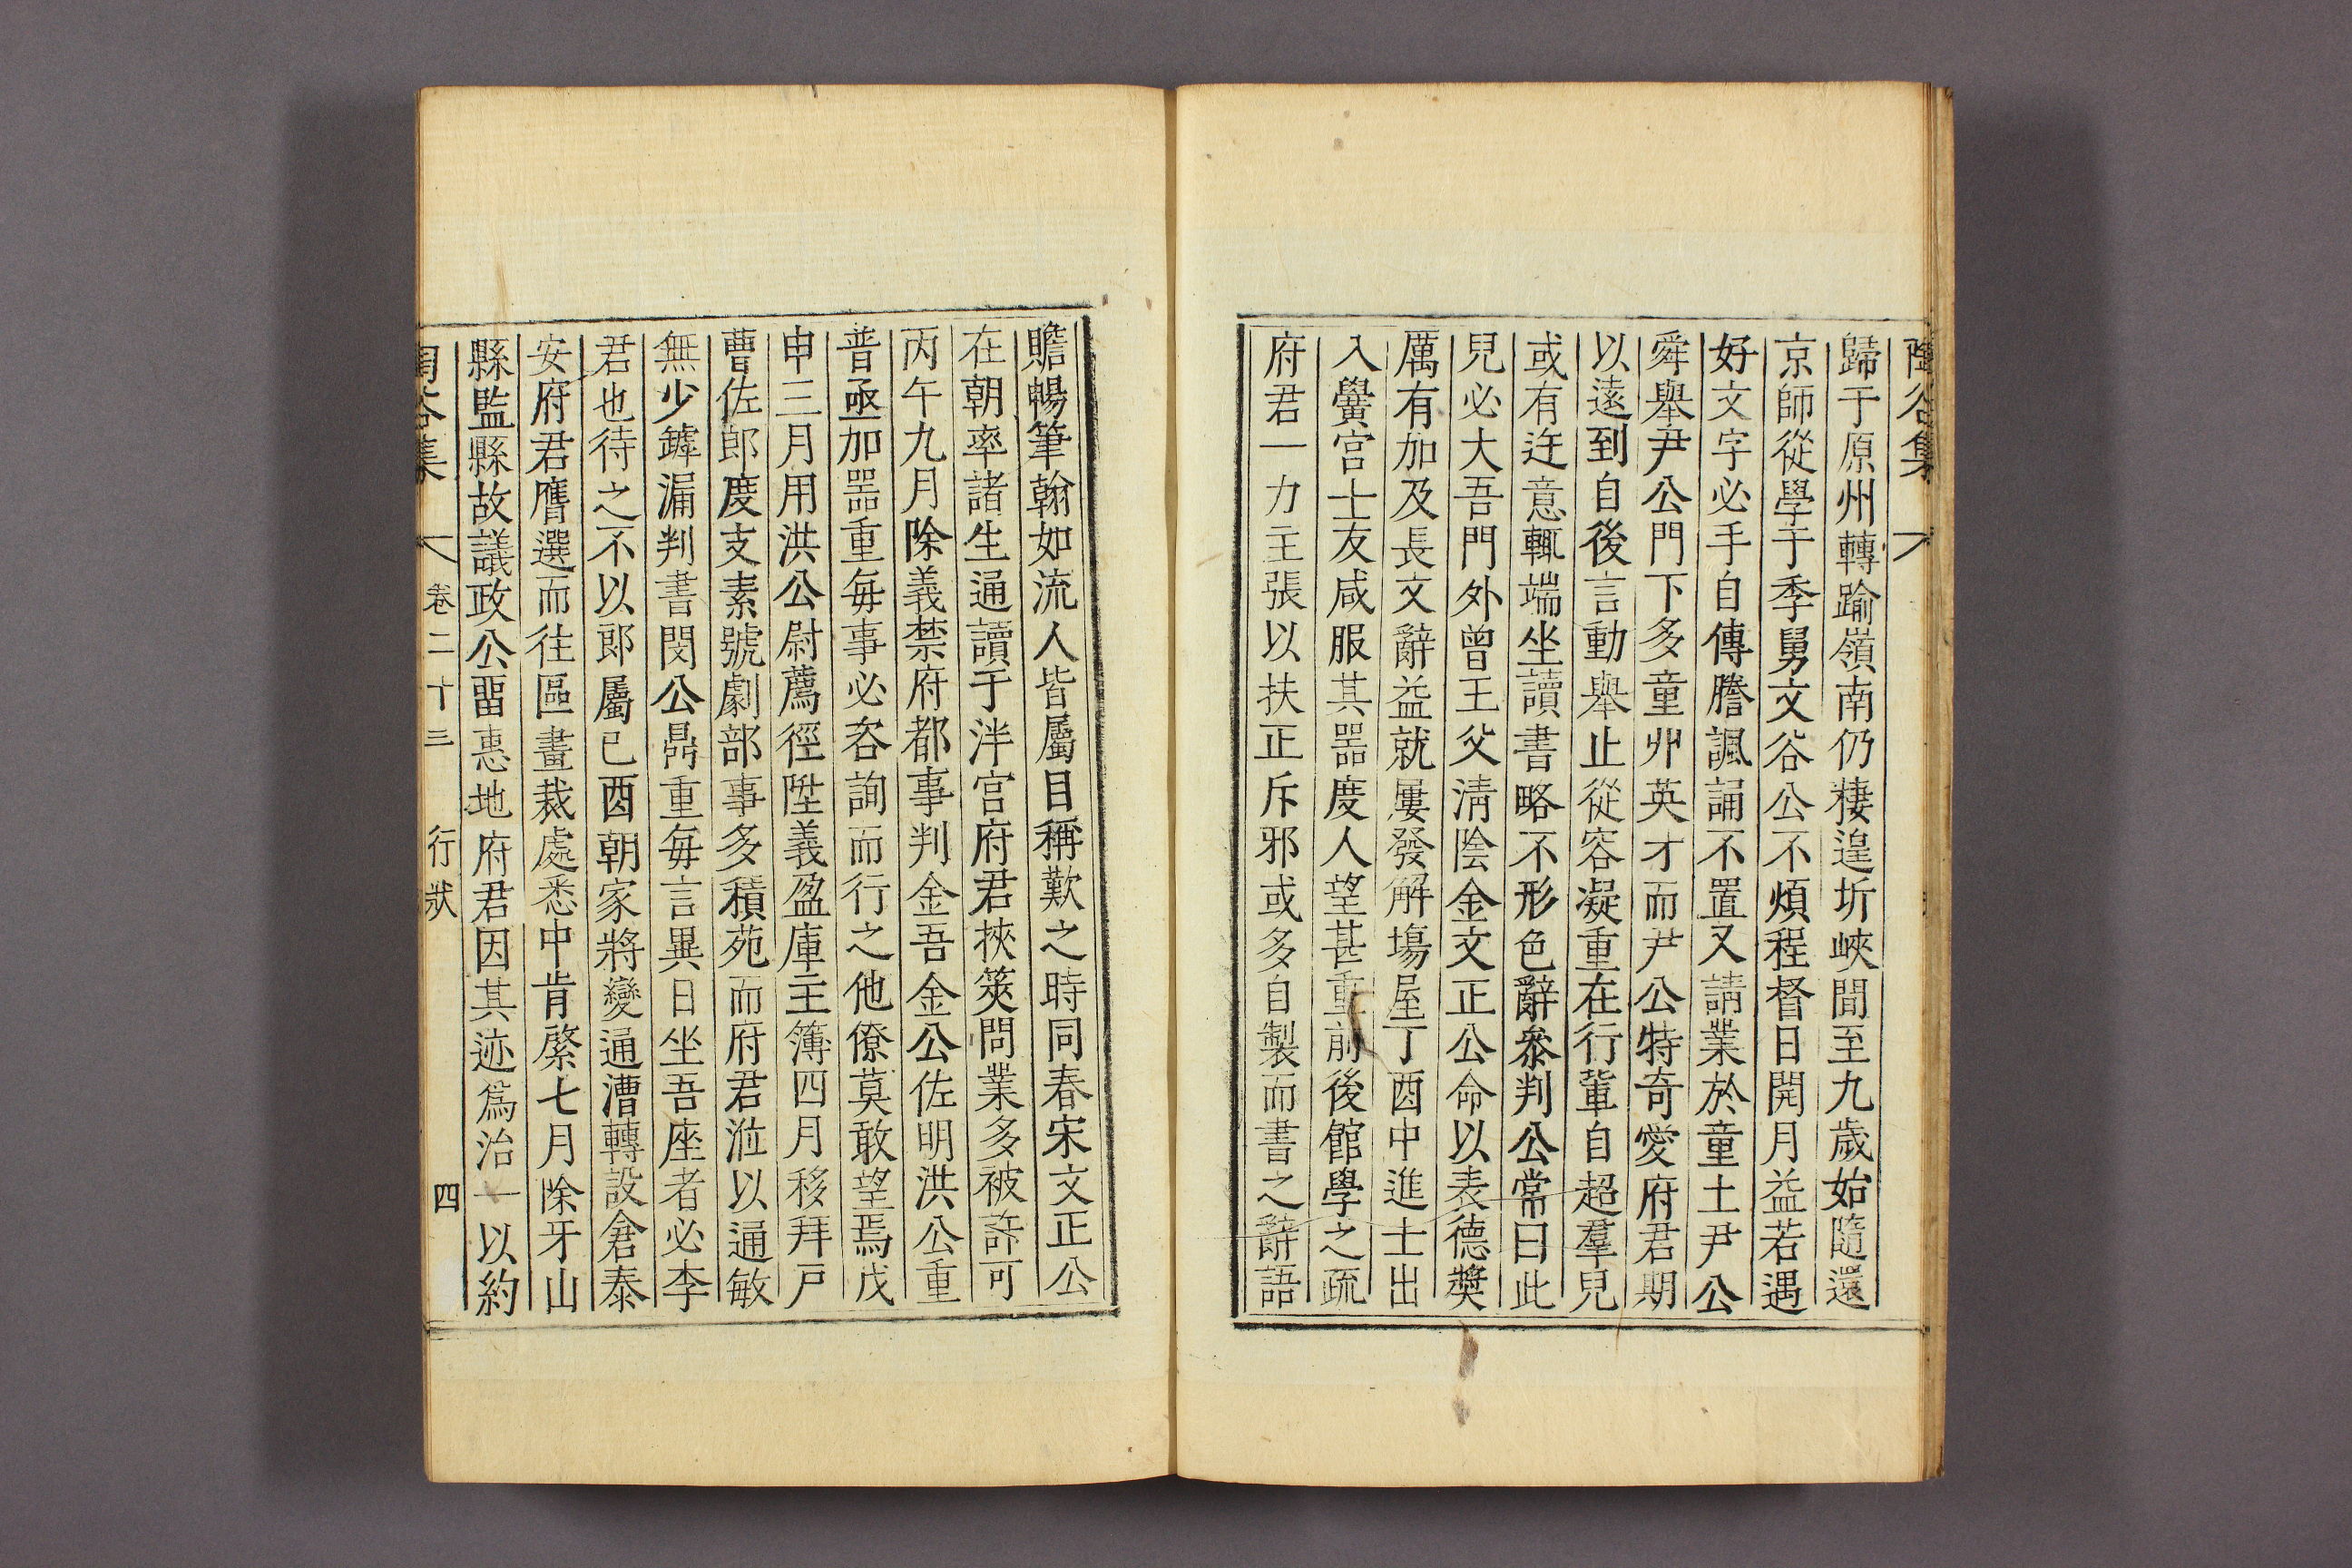 陶谷集
歸于原州轉踰嶺南仍棲遑圻峽間至九歲始隨還
京師從學于季舅文谷公不煩程督日開月益若遇
好文字必手自傳謄諷誦不置又請業於童土尹公
舜舉尹公門下多童丱英才而尹公特奇愛府君期
以遠到自後言動舉止從容凝重在行輩自超羣兒
或有迕意輒端坐讀書略不形色辭叅判公常曰此
兒必大吾門外曾王父淸陰金文正公命以表德奬
厲有加及長文辭益就屢發解塲屋丁酉中進士出
入黌宮士友咸服其噐度人望甚重前後館學之疏
府君一力主張以扶正斥邪或多自製而書之辭語
贍暢筆翰如流人皆屬目稱歎之時同春宋文正公
在朝率諸生通讀于泮宮府君挾筴問業多被許可
丙午九月除義禁府都事判金吾金公佐明洪公重
普亟加噐重每事必咨詢而行之他僚莫敢望焉戊
申三月用洪公尉薦徑陞義盈庫主簿四月移拜戶
曹佐郎度支素號劇部事多積苑而府君涖以通敏
無少罅漏判書閔公鼎重每言異日坐吾座者必李
君也待之不以郎屬己酉朝家將變通漕轉設倉泰
安府君膺選而往區畫裁處悉中肯綮七月除牙山
縣監縣故議政公畱惠地府君因其迹爲治一以約
陶谷集 卷二十三 行狀 四